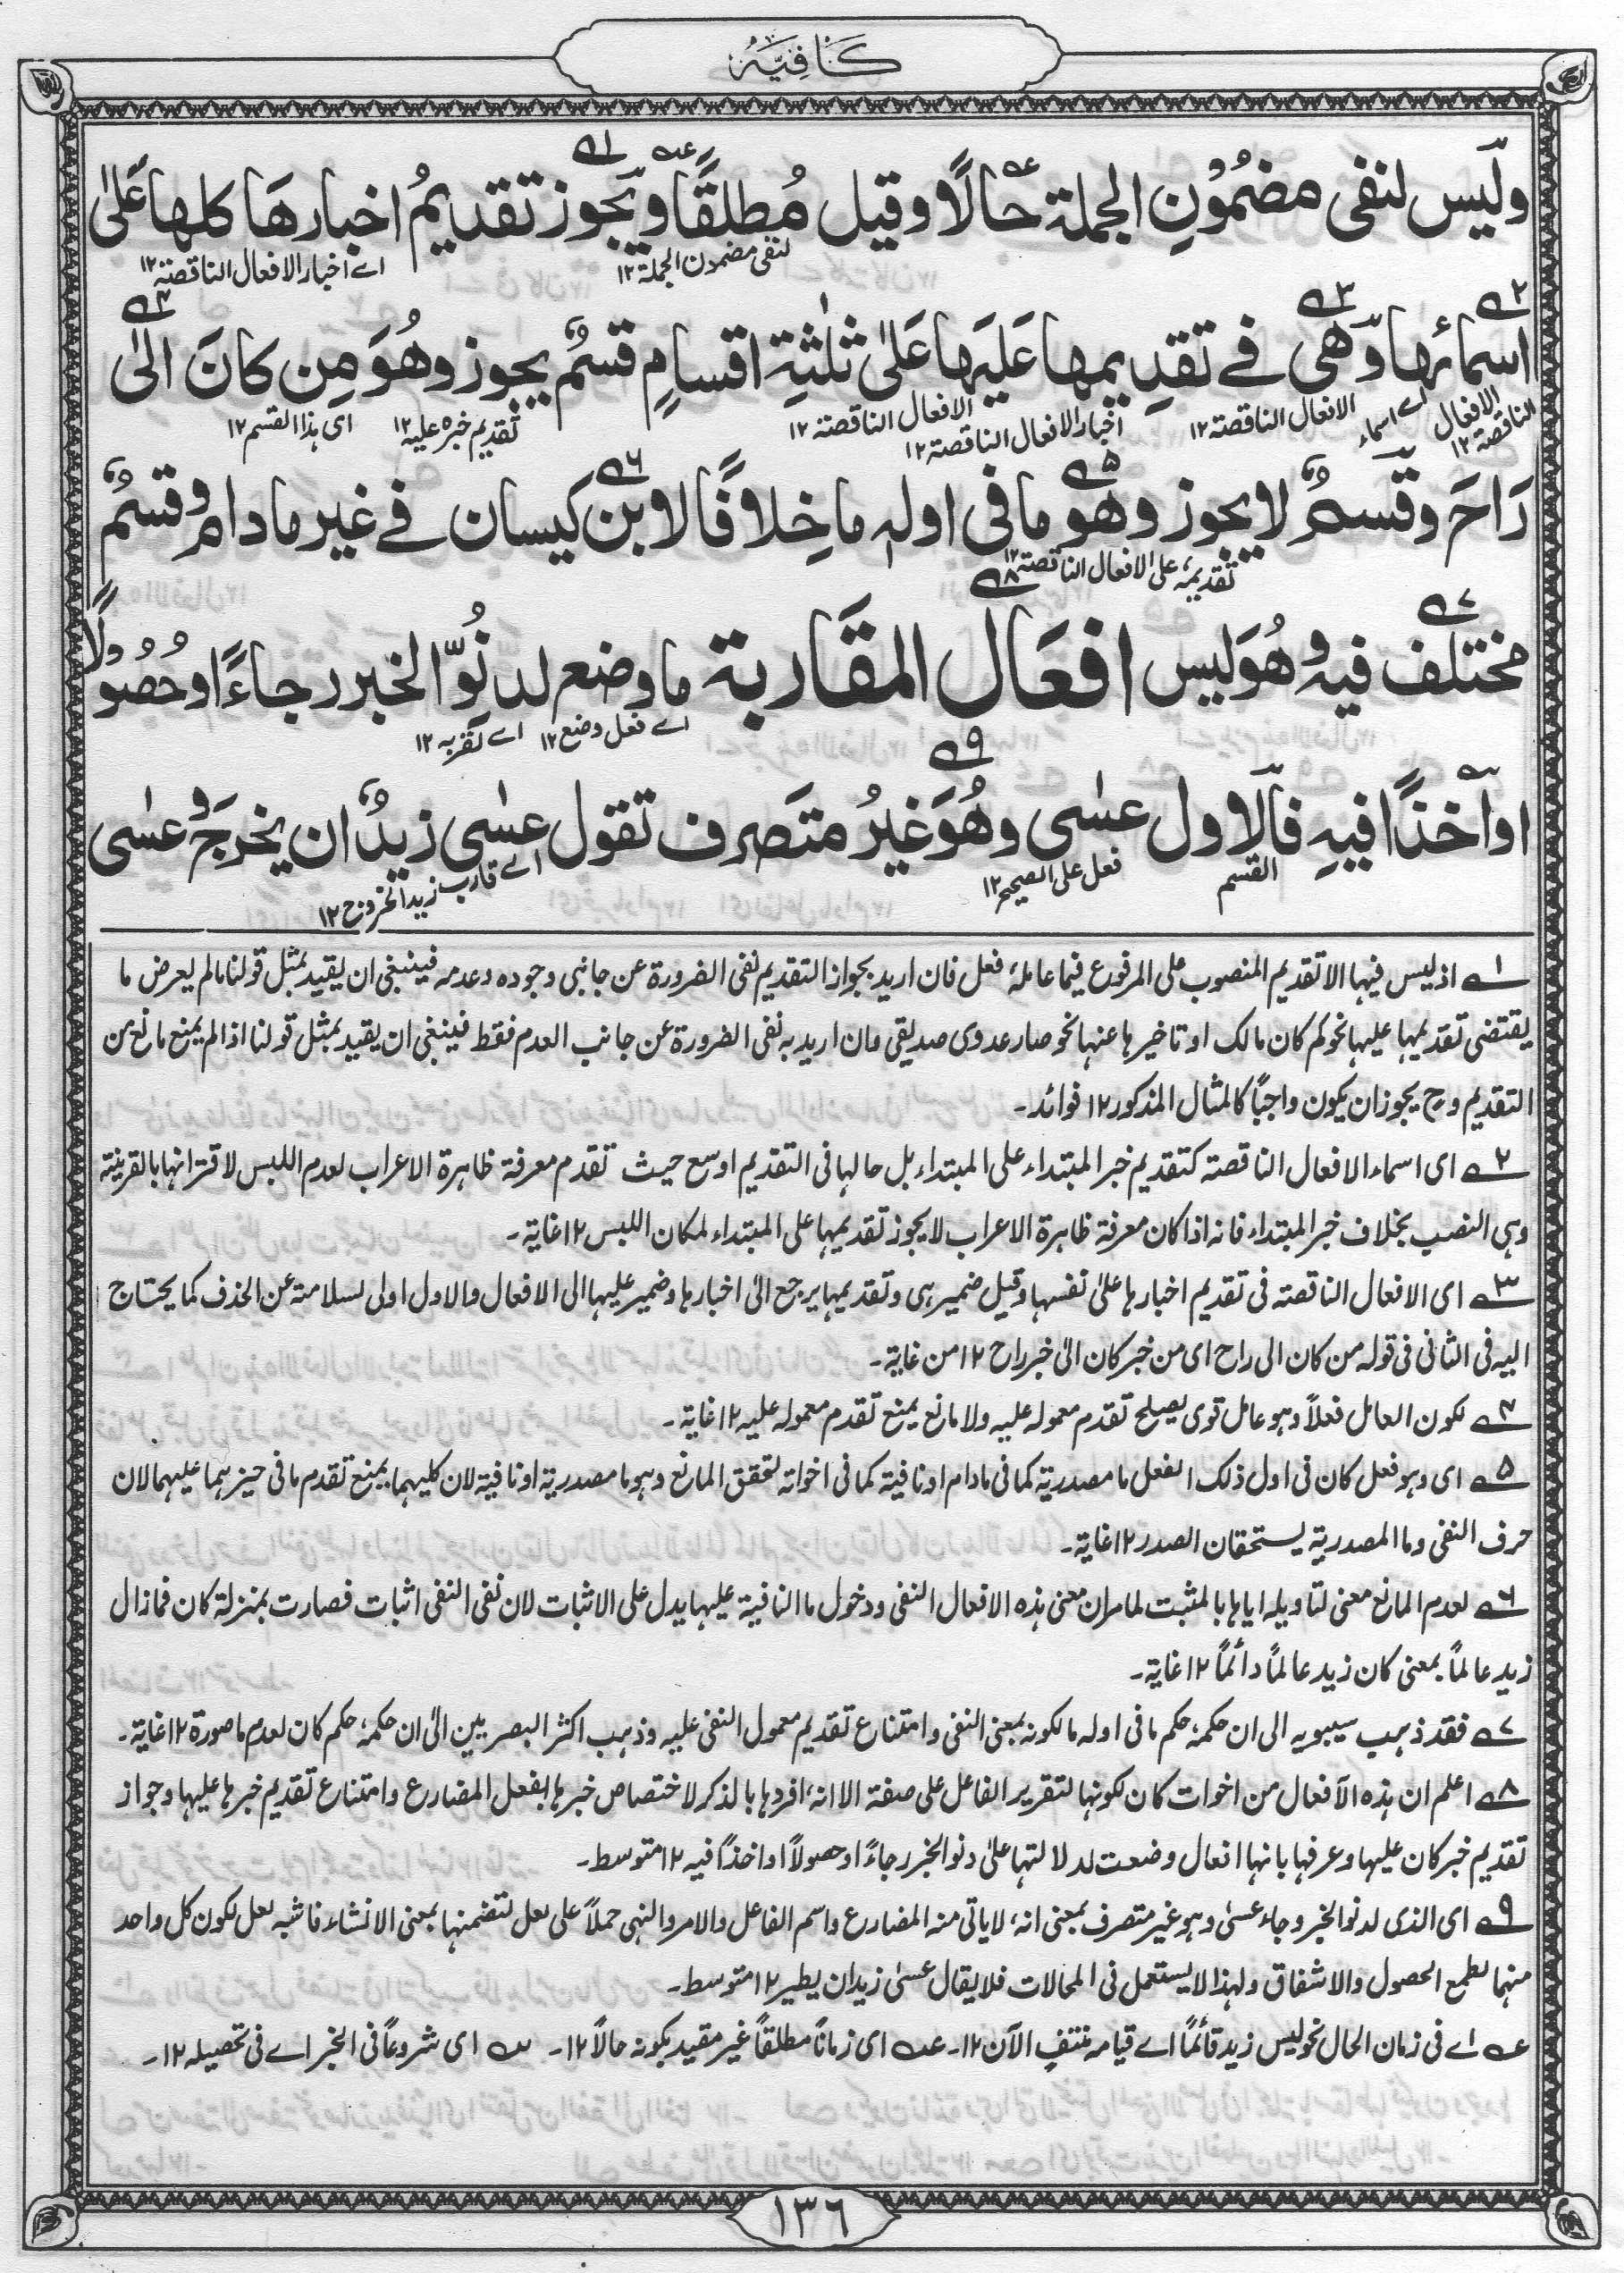 كَافِيَهْ
وليس لنفى مضمُوْنِ الجملة حالًا وقيل مُطلقًا ويجوز تقديمُ اخبارهَا كلها عَلىٰ
لنفى مضمون الجملة ١٢
اے اخبار الافعال الناقصة ١٢
اسمائها وهى فے تقدِيمها عَلَيَها عَلىٰ ثلٰثةِ اقسامٍ قسمٌ يجوز وهُوَ مِن كانَ الىٰ
اے اسماء الافعال الناقصة ١٢
الافعال الناقصة ١٢
اخبار الافعال الناقصة ١٢
الافعال الناقصة ١٢
تقديم خبره عليه ١٢
اى هذا القسم ١٢
رَاحَ وقسمٌ لا يجوز وهُو ما فى اوله ما خِلافًا لابن كيسان فے غير ما دام وقسمٌ
تقديمه على الافعال الناقصة ١٢
مختلف فيه وهُوَ ليس افعَال المقَاربة ما وضع لدنُوّ الخبر رجاءً او حُصُولًا
اے فعل وضع ١٢
اے لقربه ١٢
او اخذًا فيهِ فالاول عسٰى وهُوَ غيرُ متَصرف تقول عسٰى زيدٌ ان يخرجَ وعسٰى
القسم
فعل على الصحيح ١٢
اے قارب زيد الخروج ١٢
١ اذ ليس فيها الا تقديم المنصوب على المرفوع فيما عاملہ فعل فان اريد بجواز التقديم نفى الضرورة عن جانبى وجوده وعدمه فينبغى ان يقيد بمثل قولنا مالم يعرض ما
يقتضى تقديمها عليها نحوكم كان مالك او تاخيرها عنها نحو صار عدوى صديقى وان اريد به نفى الضرورة عن جانب العدم فقط فينبغى ان يقيد بمثل قولنا اذا لم يمنع مانع من
التقديم وح يجوز ان يكون واجبًا كالمثال المذكور ١٢ فوائد۔
٢ اى اسماء الافعال الناقصة كتقديم خبر المبتداء على المبتداء بل حالها فى التقديم اوسع حيث تقدم معرفة ظاهرة الاعراب لعدم اللبس لاقترانها بالقرينة
وهى النصب بخلاف خبر المبتداء فانه اذا كان معرفة ظاهرة الاعراب لا يجوز تقديمها على المبتداء لمكان اللبس ١٢ غاية۔
٣ اى الافعال الناقصة فى تقديم اخبارها علىٰ نفسها وقيل ضمير هى وتقديمها يرجع الىٰ اخبارها وضمير عليها الى الافعال والاول اولى لسلامته عن الحذف كما يحتاج
اليه فى الثانى فى قوله من كان الى راح اى من خبر كان الىٰ خبر راح ١٢ من غاية۔
٤ لكون العامل فعلًا وهو عامل قوى يصلح تقدم معموله عليه ولا مانع يمنع تقدم معموله عليه ١٢ غاية۔
٥ اى وهو فعل كان فى اول ذلك الفعل ما مصدرية كما فى مادام او نافية كما فى اخواته لتحقق المانع وهو ما مصدرية او نافية لان كليهما يمنع تقدم ما فى حيزهما عليهما لان
حرف النفى وما المصدرية يستحقان الصدر ١٢ غاية۔
٦ لعدم المانع معنى لتاويله اياها بالمثبت لما مر ان معنى هذه الافعال النفى ودخول ما النافية عليها يدل على الاثبات لان نفى النفى اثبات فصارت بمنزلة كان فما زال
زيد عالمًا بمعنى كان زيد عالمًا دائمًا ١٢ غاية۔
٧ فقد ذهب سيبويه الى ان حكمه حكم ما فى اوله ما لكونه بمعنى النفى وامتناع تقديم معمول النفى عليه وذهب اكثر البصريين الىٰ ان حكمه حكم كان لعدم ما صورة ١٢ غاية۔
٨ اعلم ان هذه الآفعال من اخوات كان لكونها لتقرير الفاعل على صفة الا انه افردها بالذكر لاختصاص خبرها بالفعل المضارع وامتناع تقديم خبرها عليها وجواز
تقديم خبر كان عليها وعرفها بانها افعال وضعت لدلالتها علىٰ دنو الخبر رجاءً او حصولًا او اخذًا فيه ١٢ متوسط۔
٩ اى الذى لدنو الخبر وجاء عسىٰ وهو غير متصرف بمعنى انه لا ياتى منه المضارع واسم الفاعل والامر والنهى حملًا على لعل لتضمنها بمعنى الانشاء فاشبه لعل لكون كل واحد
منهما لطمع الحصول والاشفاق ولهذا لا يستعمل فى المحالات فلا يقال عسىٰ زيد ان يطير ١٢ متوسط۔
عہ اے فى زمان الحال نحو ليس زيد قائمًا اے قيامه منتفٍ الآن ١٢۔ عہ اى زمانًا مطلقًا غير مقيد بكونه حالًا ١٢۔ سہ اى شروعًا فى الخبر اے فى تحصيله ١٢۔
١٣٦